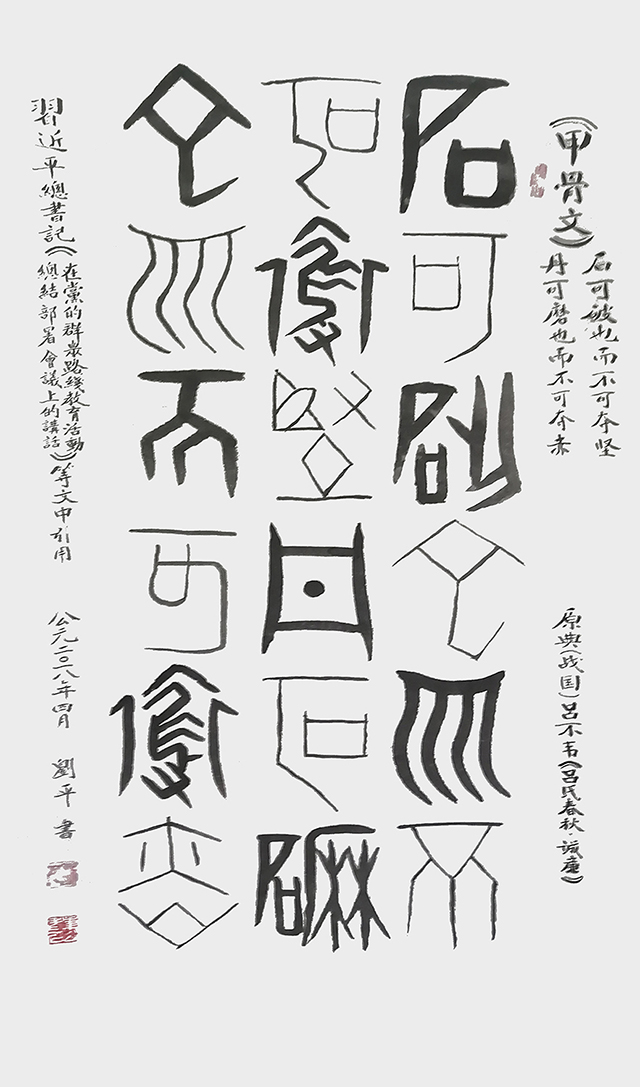 《甲骨文》
石可破也而不可夺坚
丹可磨也而不可夺赤
原典（战国）吕不韦《吕氏春秋·诚廉》
石可破也而不
可奪堅丹可磨
也而不可奪赤
習近平總書記《在黨的群眾路綫教育活動
總結部署會議上的講話》等文中引用
公元二〇一八年四月 劉平書